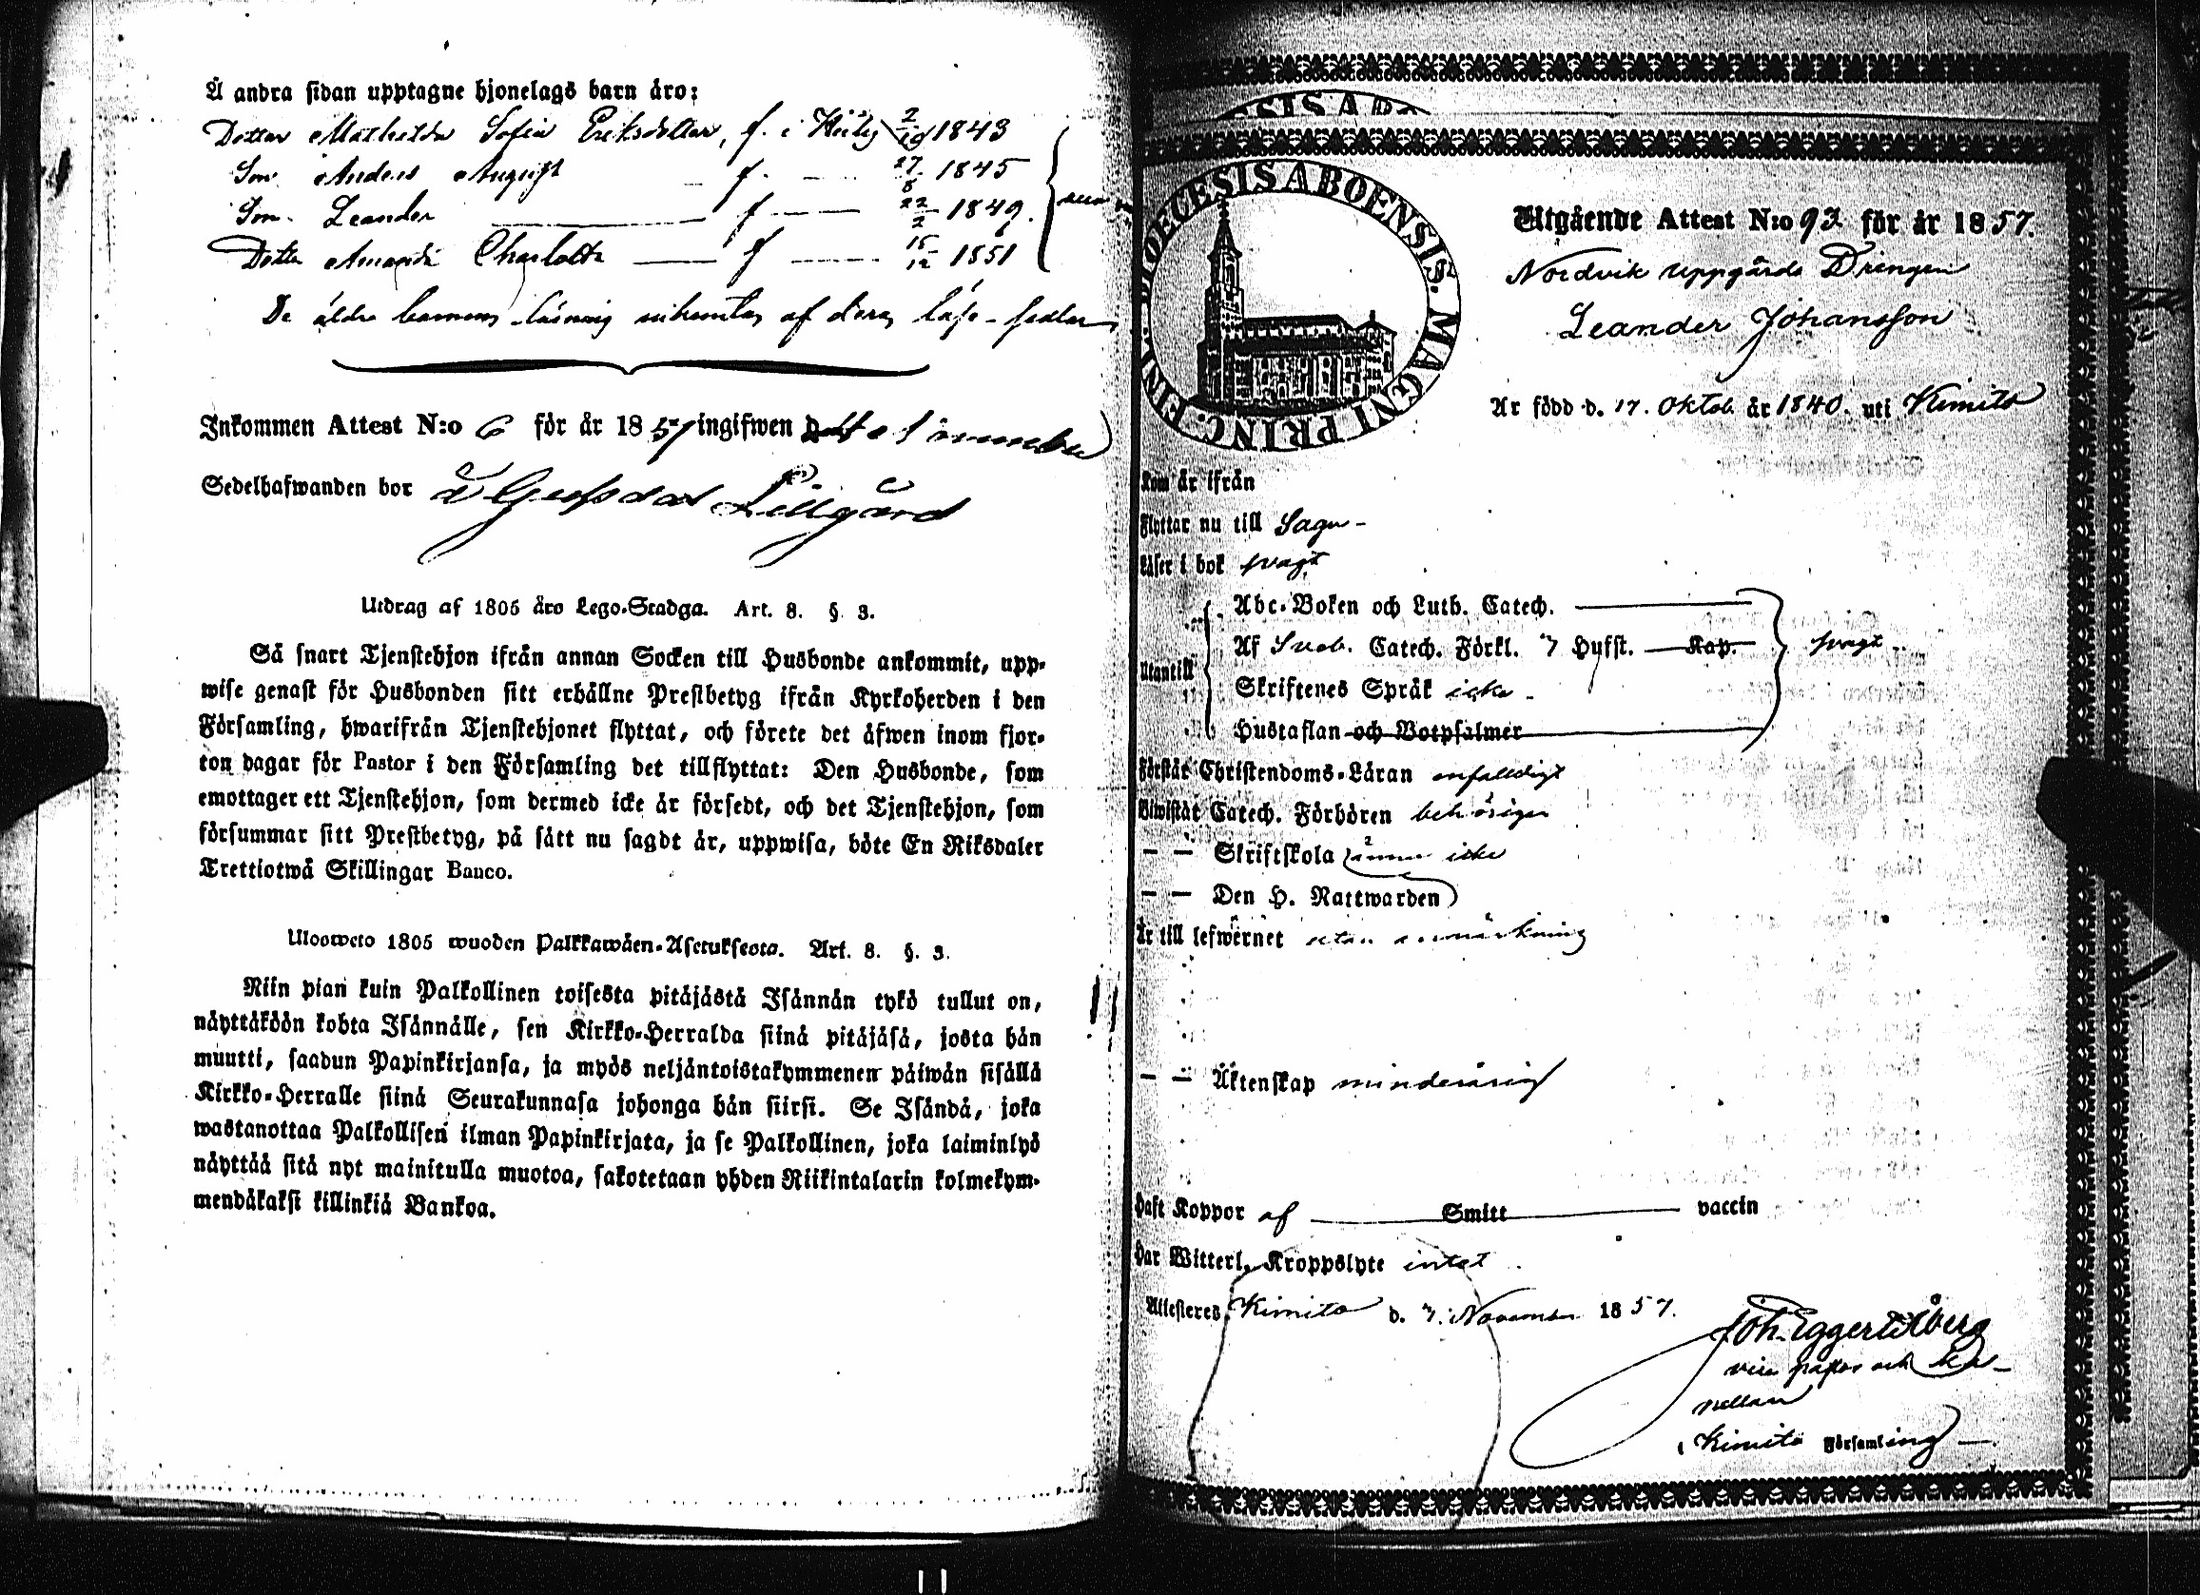 Å andra sidan upptagne hjonelags barn äro:
Dotter Mathilda Sofia Eriksdotter, f. i 2/10 1843
Son Anders August f. 27/8 1845
Son Leander f. 22/2 1849
Dotter Amanda Charlotta f 15/12 1851
De äldre barnens läsning af deras läse-sedlar
Inkommen Attest N:o 6 för år 1857 ingifwen
Sedelhafwanden bor Lillgård
Utdrag af 1805 års Lego-Stadga. Art. 8. §. 3.
Så snart Tjenstehjon ifrån annan Socken till Husbonde ankommit, upp-
wise genast för Husbonden sitt erhållne Prestbetyg ifrån Kyrkoherden i den
Församling, hwarifrån Tjenstehjonet flyttat, och förete det äfwen inom fjor-
ton dagar för Pastor i den Församling det tillflyttat: Den Husbonde, som
emottager ett Tjenstehjon, som dermed icke är försedt, och det Tjenstehjon, som
försummar sitt Prestbetyg, på sätt nu sagdt är, uppwisa, böte En Riksdaler
Trettiotwå Skillingar Banco.
Ulosweto 1805 wuoden Palkkawäen-Asetuksesta. Art. 8. §. 3.
Niin pian kuin Palkollinen toisesta pitäjästä Isännän tykö tullut on,
näyttäköön kohta Isännälle, sen Kirkko-Herralda siinä pitäjäsä, josta hän
muutti, saadun Papinkirjansa, ja myös neljäntoistakymmenen päiwän sisällä
Kirkko-Herralle siinä Seurakunnasa johonga hän siirsi. Se Isändä, joka
wastanottaa Palkollisen ilman Papinkirjata, ja se Palkollinen, joka laiminlyö
näyttää sitä nyt mainitulla muotoa, sakotetaan yhden Riikintalarin kolmekym-
mendäkaksi killinkiä Bankoa.
DIOECESIS ABOENSIS. MAGNI PRINC. FINL.
Utgående Attest N:o 92 för år 1857.
Nordvik Uppgårds Drengen
Leander Johansson
Är född d. 17. Oktob. år 1840. uti Kimito
Kom år ifrån
Flyttar nu till Sagu-
Läser i bok svagt
Utantill
Abc-Boken och Luth. Catech.
Af Sveb. Catech. Förkl. 7 Hufst. Kap. svagt
Skriftenes Språk icke
Hustaflan och Botpsalmer
Förstår Christendoms-Läran enfaldigt
Biwistat Catech. Förhören behörigen
— — Skriftskola ännu icke
— — Den H. Nattwarden
Är till lefwernet utan anmärkning
— — Äktenskap minderårig
Haft Koppor af Smitt vaccin
Har Witterl. Kroppslyte intet
Attesteras, Kimito d. 7. November 1857.
Joh. Eggert Öberg
vice pastor och ka-
pellan
i Kimito Församling